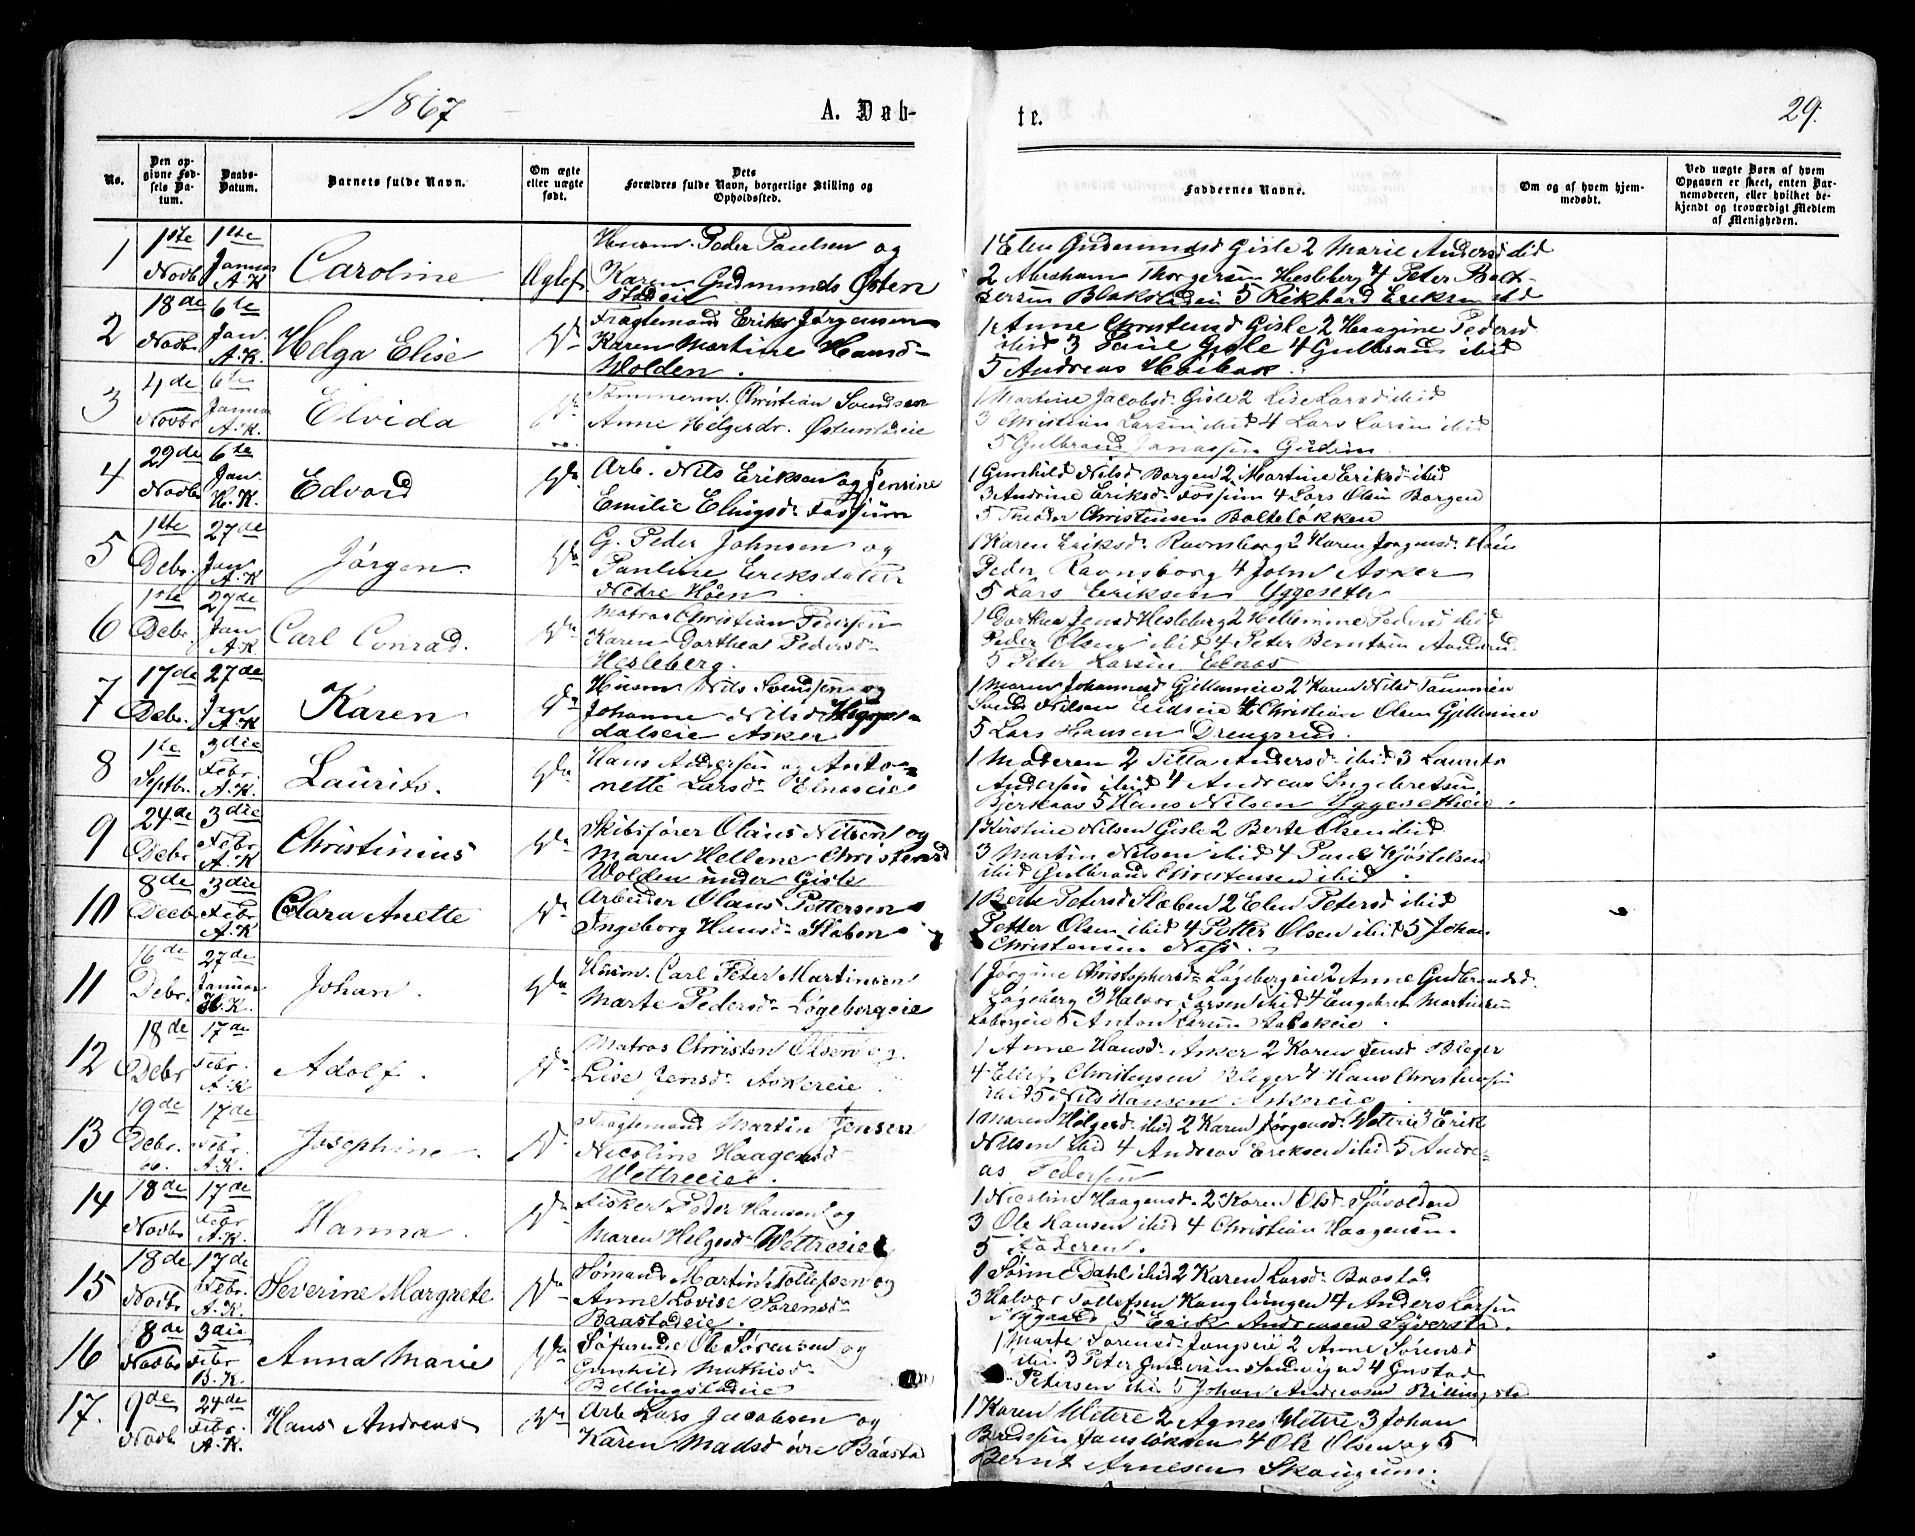 1867
A. Døb-
te.
29.
No.
Den op-
givne Fød-
sels Da-
tum.
Daabs-
Datum.
Barnets fulde Navn.
Om ægte
eller uægte
født.
Dets
Forældres fulde Navn, borgerlige Stilling og
Opholdssted.
Faddernes Navne.
Om og af hvem hjem-
medøbt.
Ved uægte Børn af hvem
Opgaven er skeet, enten Bar-
nemoderen, eller hvilket be-
kjendt og troværdigt Medlem
af Menigheden.
1 1ste Novbr 1ste Januar A.K Caroline Ægtef
Husm. Peder Paulsen og
Karen Gudmunds Østen
stadeie
1 Elen Gudmundsd Gisle 2 Marie Andersd ibid
2 Abraham Thorgersen Hesleberg 4 Peter
5 Rikhard Eriksen ibid
2 18de Novbr 6te Jan. A.K. Helga Elise Do
Fragtemand Erik Jørgensen
Karen Martine Hansd
Wolden.
1 Anne Christensd Gisle 2 Haagine Pedersd
ibid 3 Gisle 4 Gulbrand ibid
5 Andreas Høibak.
3 4de Novbr 6te Januar A.K. Elvida Do
Tømmerm. Christian Svendsen
Anne Helgesdr. Østenstadeie
1 Martine Jacobsd. Gisle 2 Lise Larsd ibid
3 Christian Larsen ibid 4 Lars Larsen ibid
5 Gulbrand Jonassen Gudim
4 29de Novbr 6te Jan. H.K. Edvard Do
Arb. Nils Eriksen og Jensine
Emilie Elingsd. Fossum
1 Gunhild Nilsd Borgen 2 Martine Eriksd ibid
3 Andrine Eriksd Fossum 4 Lars Olsen Borgen
5 Theodor Christensen Bolteløkken
5 1ste Debr. 27de Jan A.K Jørgen. Do
G. Peder Johnsen og
Pauline Eriksdatter
Nedre Høen
1 Karen Eriksd. Ravnsborg 2 Karen Jørgensd. Høen
Peder Ravnsborg 4 John Asker
5 Lars Eriksen Yggeseter
6 1ste Debr. 27de Jan A.K Carl Conrad. Do
Matros Christian Pedersen
Karen Dorthea Pedersd
Hesleberg.
1 Dorthea Jensd Hesleberg 2 Hellemine Pedersd ibid
Peder Olsen ibid 4 Peter Berntsen
5 Peter Larsen Elnæs
7 17de Debr. 27de Jan A.K Karen Do
Husm Nils Svendsen og
Johanne Nilsd Hogge
dalseie Asker
1 Maren Johannesd Gjellumeie 2 Karen Nilsd
Svend Nilsen Eidseie 4 Christian Olsen Gjellumeie
5 Lars Hansen Drengsrud.
8 1ste Septbr. 3die Febr A.K. Laurits. Do
Hans Andersen og Anto-
nette Larsd. Elnæseie
1 Moderen 2 Tilla Andersd ibid 3 Laurits
Andersen ibid 4 Andreas Ingebretsen
Bjerkaas 5 Hans Nilsen Yggesetheie.
9 24de Debr 3die Febr A.K Christinius Do
Skibsfører Olaus Nilsen og
Maren Hellene Christensd
Wolden under Gisle
1 Kirstine Nilsen Gisle 2 Berte Olsen ibid
3 Martin Nilsen ibid 4 Paul Kjøstelsen
ibid Gulbrand Christensen ibid.
10 8de Decbr 3die Febr A.K Clara Anette Do
Arbeider Olaus Pettersen
Ingeborg Hansd Slæben
1 Berte Petersd Slæben 2 Elen Petersd ibid
Petter Olsen ibid 4 Petter Olsen ibid 5 Johan
Christensen Næss.
11 16de Debr. 27de Januar H.K. Johan. Do
Husm. Carl Peter Martinsen
Marte Pedersd. Løgebergeie
1 Jørgine Christophersd Løgebergeie 2 Anne Gudbrandsd.
Løgeberg 3 Halvor Larsen ibid 4 Engebret Martinsen
Løbergeie 5 Anton Larsen
12 18de Debr 17de Febr. A.K Adolf. Do
Matros Christen Olsen og
Lise Jensd. Askereie.
1 Anne Hansd. Asker 2 Karen Jensd Bleger
4 Ellef Christensen Bleger 4 Hans Christensen
ibid 5 Nils Hansen Askereie
13 19de Debr. 17de Febr. A.K. Josephine. Do
Fragtemand Martin Jensen
Nicoline Haagensd
Wettreeie.
1 Maren Helgesd. ibid 2 Karen Jørgensd. Wettrie 3 Erik
Nilsen ibid 4 Andreas Eriksen ibid 5 Andre-
as Pedersen
14 18de Novbr 17de Febr A.K. Hanna. Do
Fisker Peder Hansen og
Maren Helgesd. Wettreeie
1 Nicoline Haagensd. 2 Karen Olsd. Sjøvolden
3 Ole Hansen ibid 4 Christian Haagensen.
5 Faderen.
15 18de Novbr 17de Febr. A.K. Severine Margrete Do
Sømand Martin Tollefsen og
Anne Lovise Sørensd.
Baastadeie.
1 Sørine Dahl ibid 2 Karen Larsd. Baastad
3 Halvor Tollefsen Konglungen 4 Anders Larsen
5 Erik Andreasen Syverstad.
16 8de Novbr 3die Febr B.K. Anna Marie Do
Ole Sørensen og
Gunhild Mathisd.
Billingstadeie
1 Marte Sørensd. 2 Anne Sørensd
ibid 3 Peter Gundersen Sandvigen 4 Gustav
Petersen ibid 5 Johan Andreasen Billingstad
17. 9de Novbr 24de Febr. A.K. Hans Andreas Do
Arb Lars Jacobsen og
Karen Madsd øvre Baastad
1 Karen Wettre 2 Agnes Wettre 3 Johan
Berntsen Jansløkken 4 Ole Olsen og 5
Bernt Arnesen Skougum.